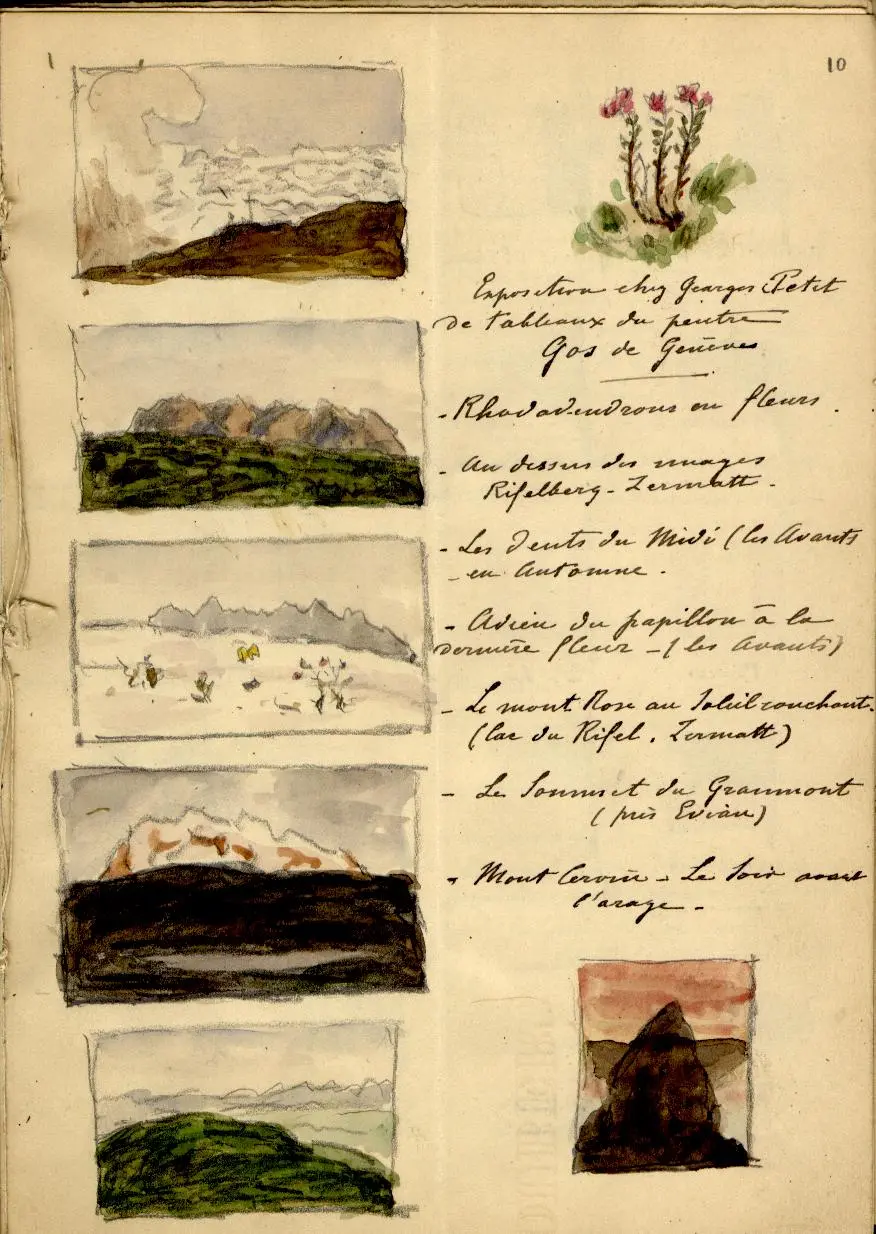 10
Exposition chez Georges Petit
de tableaux du peintre
Gos de Genève
- Rhododendrons en fleurs.
- Au dessus des nuages
Rifelberg - Zermatt -
- Les Dents du Midi (les Avants
- en Automne.
- Adieu du papillon à la
dernière fleur - (les Avants)
- Le mont Rose au Soleil couchant.
(lac du Rifel. Zermatt)
- Le Sommet du Grammont
(près Evian)
- Mont Cervin - Le Soir avant
l'orage -